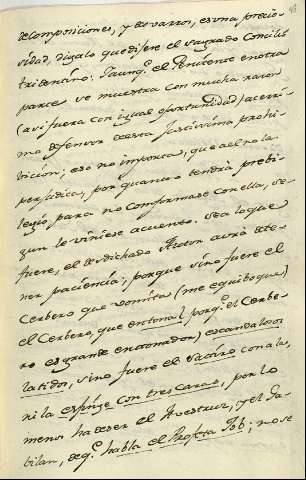 decomposiciones, y desvarros, es una precio-
sidad, digalo que dijere el sagrado Concilio
tridentino: Y aunq.e el Penitente en otra
parte se muestra con mucha razon
(asi fuera con igual oportunidad) acerri-
mo defensor de esta justissima prohi-
bicion; eso no importa, que a el no la
perjudica, por quanto tendrà prebi-
legio para no comformarse con ella, se-
gun le viniese acuento. sea lo que
fuere, el desdichado Autor aurà de te-
ner paciencia; porque sino fuere el
Cerbero que vomita (me equiboque)
el Cerbero, que entona (porq.e el Cerbe-
ro es grande entonador) escandalosos
latidos, sino fuere el satiro con alas,
ni la esfinge con tres Caras, por lo
menos ha de ser el Avestruz, y el Ga-
bilan, de q.e habla el Profeta Job; no se